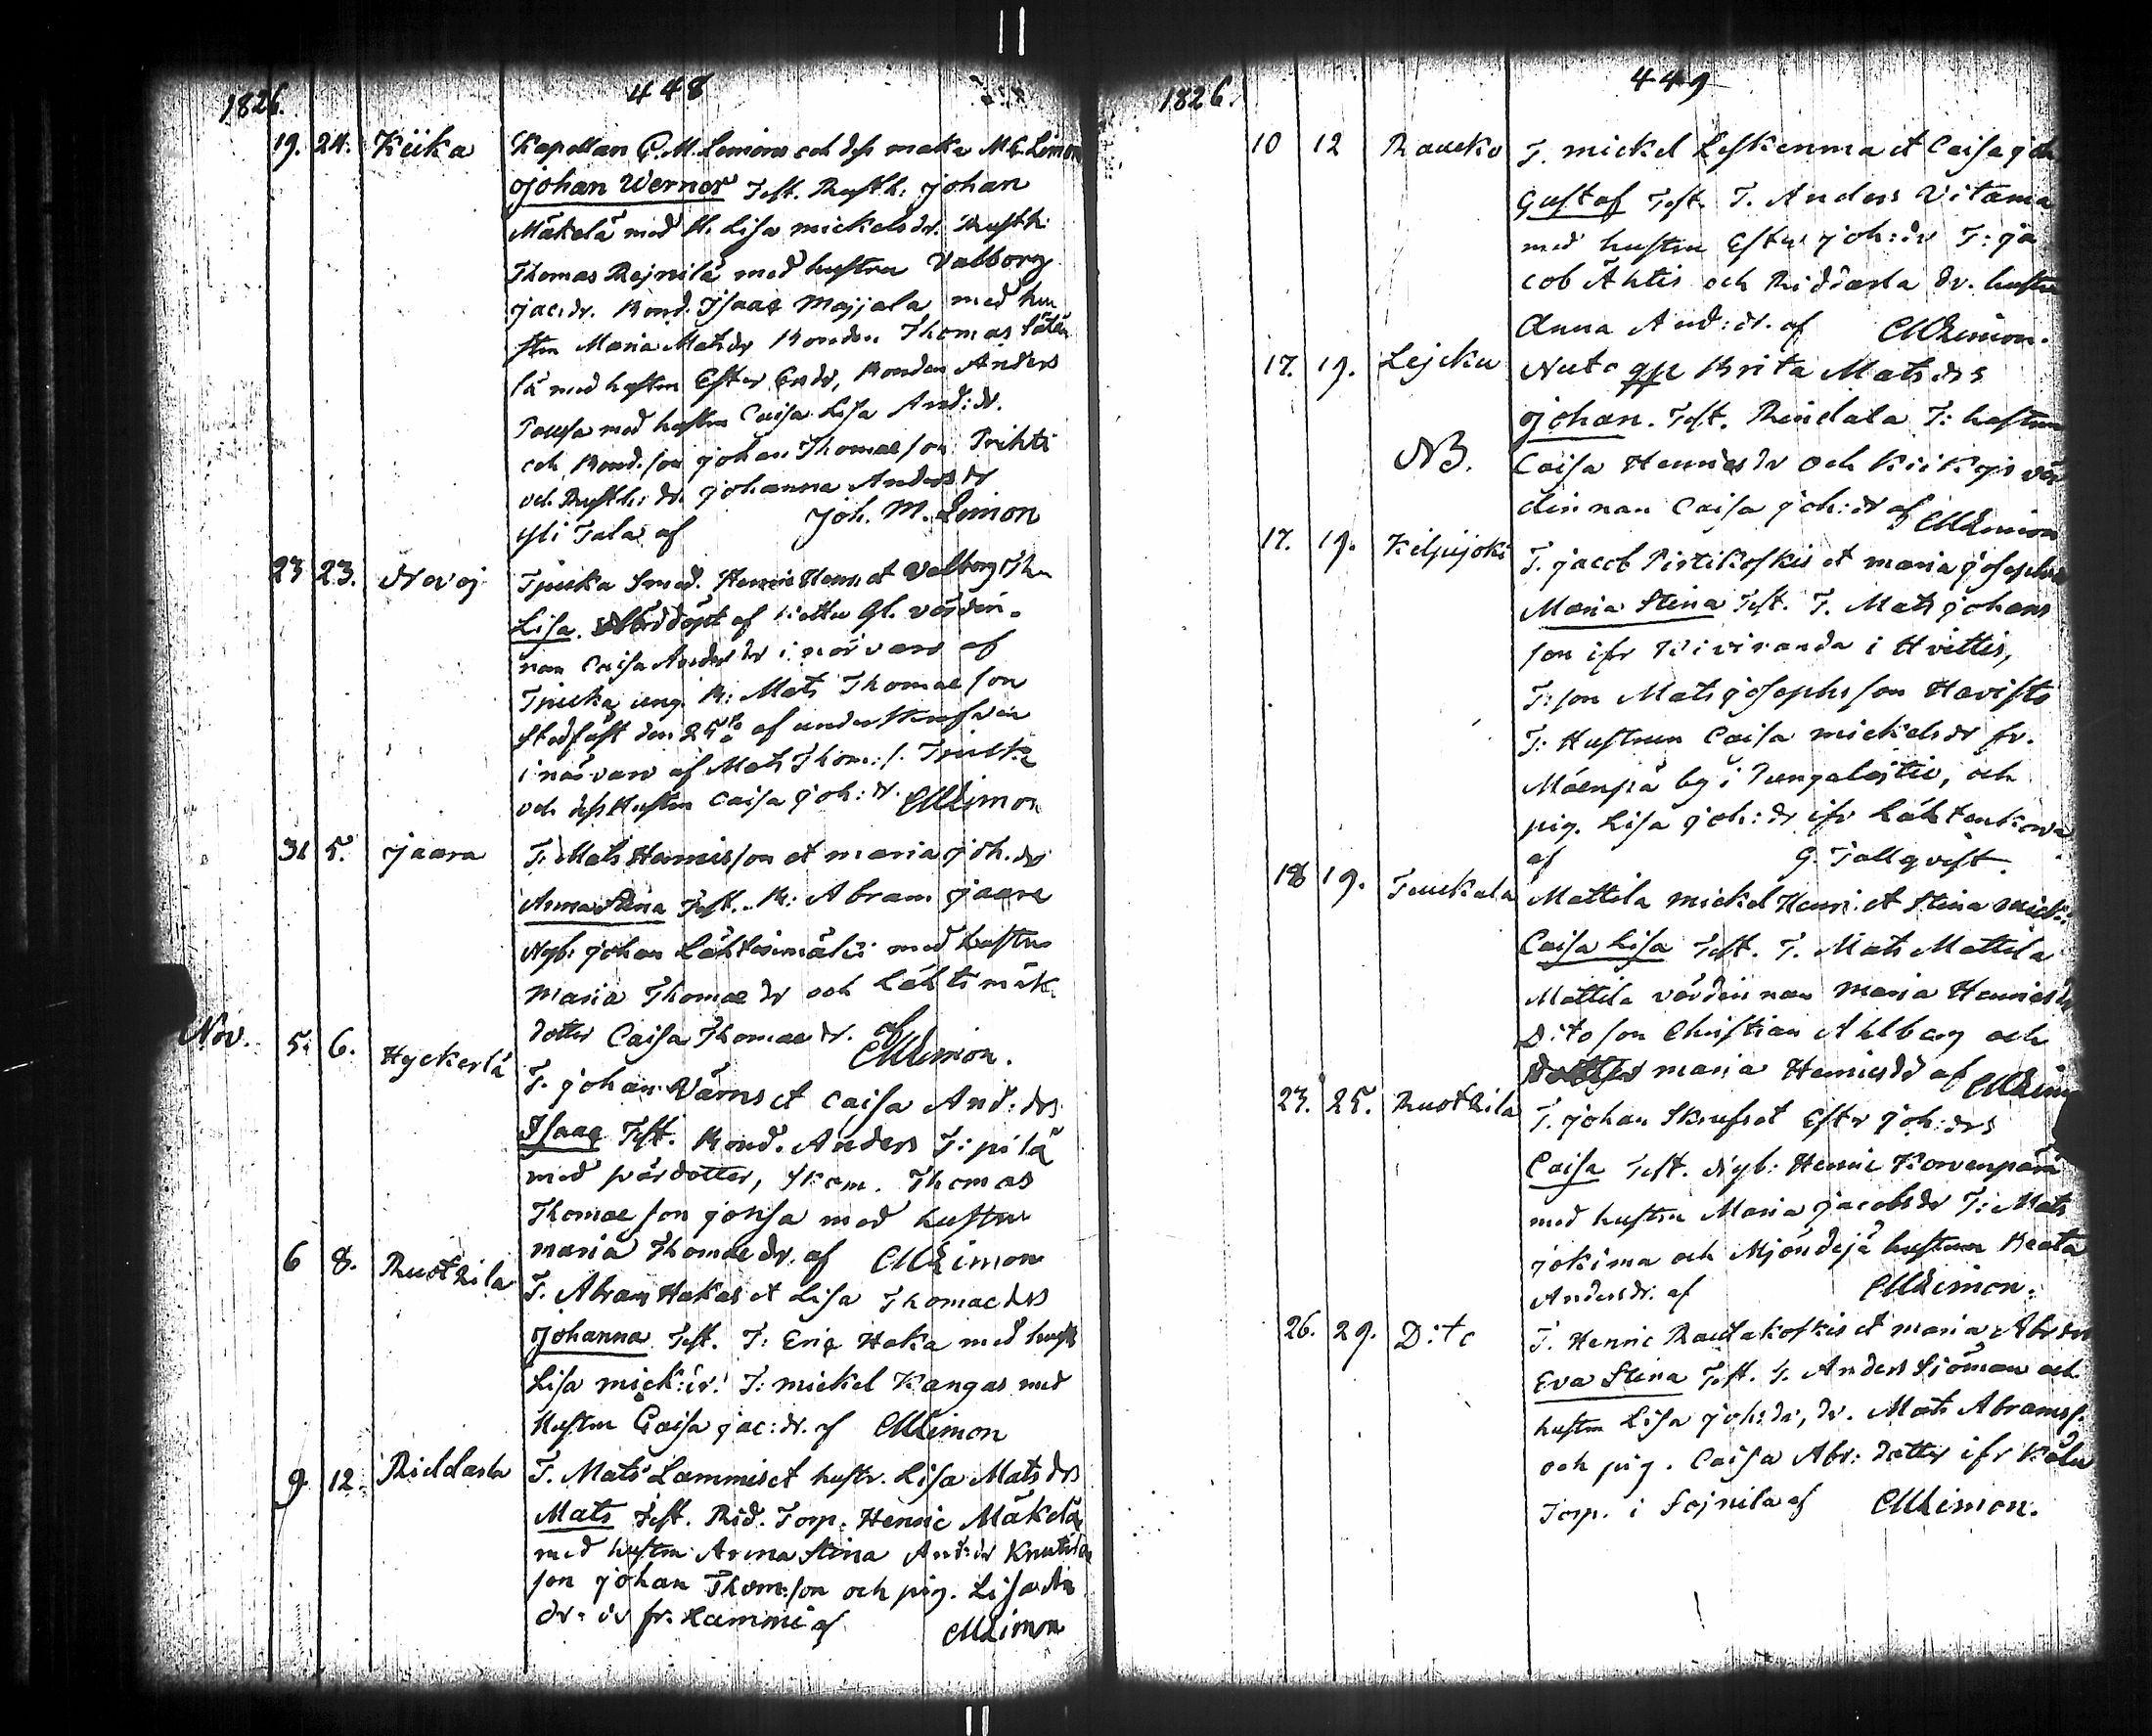 1826. 448
19. 24. Kiika Kapellan G. M. Limons och dess maka M G. Limon
Johan Werner Test. Rusth: Johan
Mäkelä med h. Lisa Mickelsdr. Rusth.
Thomas Rejnilä med hustru Valborg
Jac.dr. Bond. Isaac Maijala med hu
stru Maria Matsdr Bonden Thomas Sätä
lä med hustru Ester Er.dr, Bonden Anders
Pausa med hustru Caisa Lisa And:dr.
och Bond. son Johan Thomæson Prihti
och Rusth: dr. Johanna Andersdr
Yli Tala af Joh. M. Limon
23 23. Novoj Tjuka Smed. Henric Henr. et Valborg Th
Lisa. Nöddöpt af Kettu Gl. värdin-
nan Caisa Andersdr i närvaro af
Tjuka ung. B: Mats Thomæson
Stadfäst den 25 af underskrefven
i närvaro af Mats Thom: s. Tjuka
och dess Hustru Caisa Joh: dr. CMLimon
31 5. Jaara T. Mats Henricsson et Maria Joh. dr
Anna Stina Test. B: Abram Jaara
Nyb: Johan Lähteenmäki med hustru
Maria Thomæ dr och Lähtimäk.
dotter Caisa Thomædr. af
CMLimon.
Nov. 5. 6. Hyckerlä T. Johan Värns et Caisa And: drs
Isaac Test. Bond. Anders T: pilä
med svärdotter, Skom. Thomas
Thomæson Jonsa med hustru
Maria Thomædr. af CMLimon
6 8. Ruotzila T. Abram Hakas et Lisa Thomædrs
Johanna Test. T: Eric Haka med hust
Lisa Mick: dr. T: Mickel Kangas med
Hustru Caisa Jac: dr. af CMLimon
9. 12. Riddarla T. Mats Lammis et hustr. Lisa Mats drs
Mats Test. Rid. Torp. Henric Mäkelä
med hustru Anna Stina And: dr Knutila
son Johan Thom: son och pig. Lisa An
dr: dr fr. Lammi af CMLimon
1826. 449
10 12 Raucko T. Mickel Leskenma et Caisa Joh
Gustaf Test. T. Anders Vitama
med hustru Ester Joh: dr T: Ja
cob Ahtis och Riddarla dr. hustru
Anna And: dr. af CMLimon.
17. 19. Lejcku Nuto qp Brita Mats drs
Johan. Test. Rindala T: hustrun
NB. Caisa Henricsdr och Kiikojs vär
dinnan Caisa Joh: dr af CMLimon
17. 19. Kilpijoki T. Jacob Pirtikoskis et Maria Josephs
Maria Stina Test. T. Mats Johans
son ifr Kiviranda i Hvittis,
T: son Mats Josephsson Havisto
T: Hustrun Caisa Mickelsdr fr.
Mäenpä by i Pungalajtio, och
pig. Lisa Joh: dr ifr Lähtenkorva
af G. Tallqvist.
18 19. Tuukala Mattila Mickel Henri. et Stina Mick:
Caisa Lisa Test. T. Mats Mattila
Mattila värdinnan Maria Henricsdr
Dito son Christian Ahlberg och
Maria Henricsdr af CMLimon
23. 25. Ruotzila T. Johan Skrufs et Ester Joh: drs
Caisa Test. Nyb: Henric Korvenpää
med hustru Maria Jacobsdr T: Mats
Jokima och Mjöndejä hustrun Beata
Andersdr. af CMLimon.
26. 29. Dito T. Henric Rautakoskis et Maria Abr drs
Eva Stina Test. T. Anders Sjöman och
hustru Lisa Joh: dr, dr. Mats Abramss.
och pig. Caisa Abr: dotter ifr Kålu
Torp. i Sojnila af CMLimon.